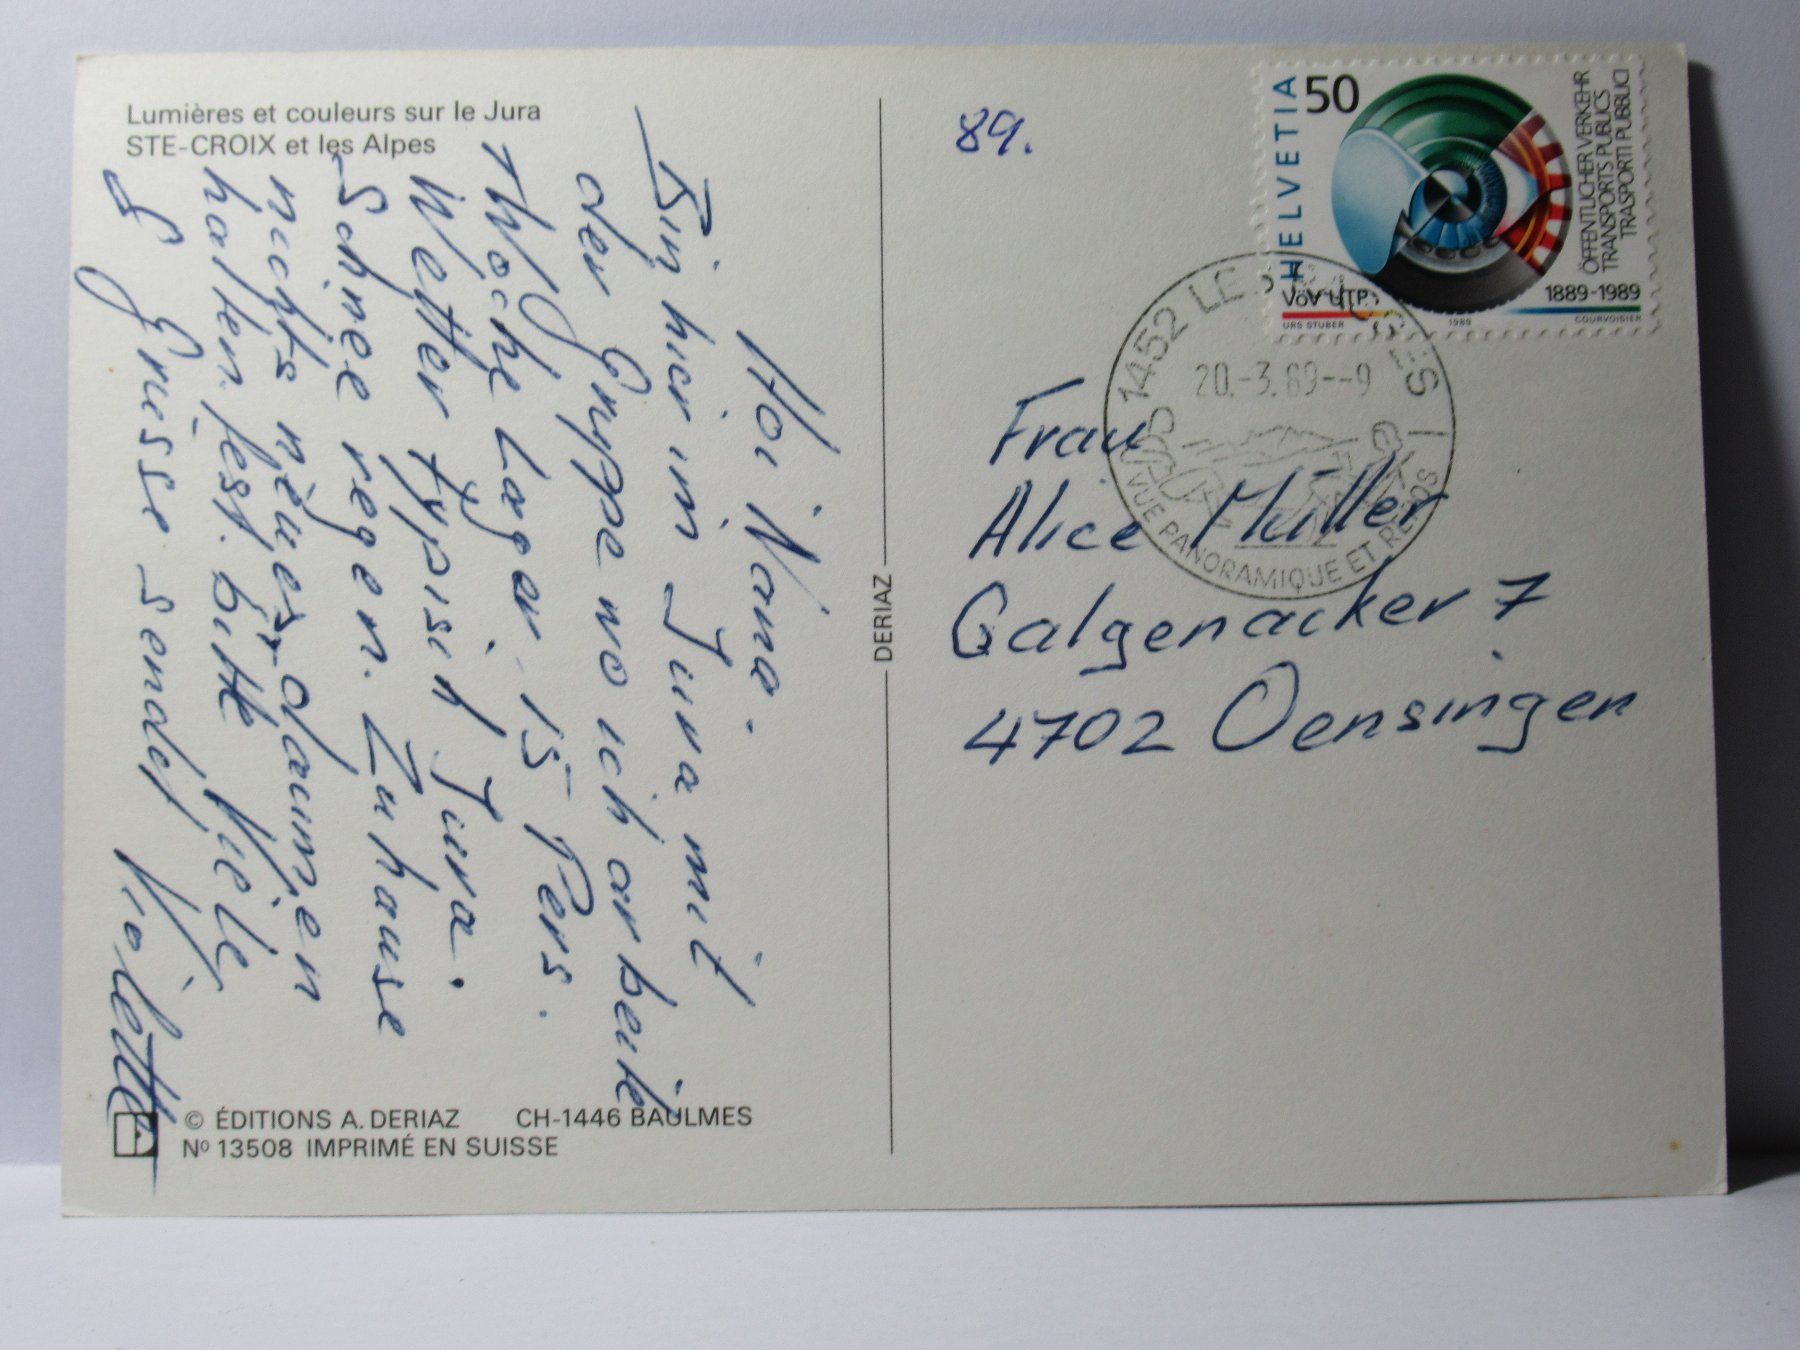 Lumières et couleurs sur le Jura
STE-CROIX et les Alpes
Hoi Nana.
Bin hier im Jura mit
der Gruppe wo ich arbeite
1 Woche Lager. 15 Pers.
Wetter typisch Jura.
Schnee regen. Zuhause
nichts neues, daumen
halten fest. bitte Viele
Grüsse sendet Violette
© ÉDITIONS A. DERIAZ CH-1446 BAULMES
Nº 13508 IMPRIMÉ EN SUISSE
DERIAZ
89.
HELVETIA
50
ÖFFENTLICHER VERKEHR
TRANSPORTS PUBLICS
TRASPORTI PUBBLICI
VöV-UTP
1889-1989
URS STUBER
1989
COURVOISIER
1452 LES RASSES
20.-3.89--9
VUE PANORAMIQUE ET REPOS
Frau
Alice Müller
Galgenacker 7
4702 Oensingen